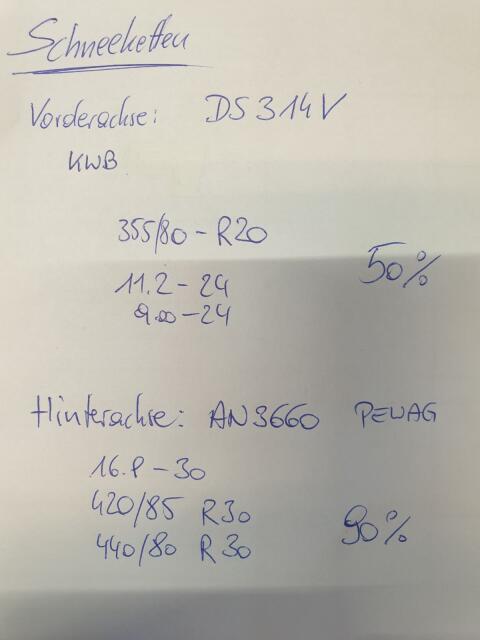 Schneeketten
Vorderachse: DS 314V
KWB
355/80 - R20
11.2 - 24
50%
9.00 - 24
Hinterachse: AN3660 PEWAG
16.9 - 30
420/85 R30
90%
440/80 R30